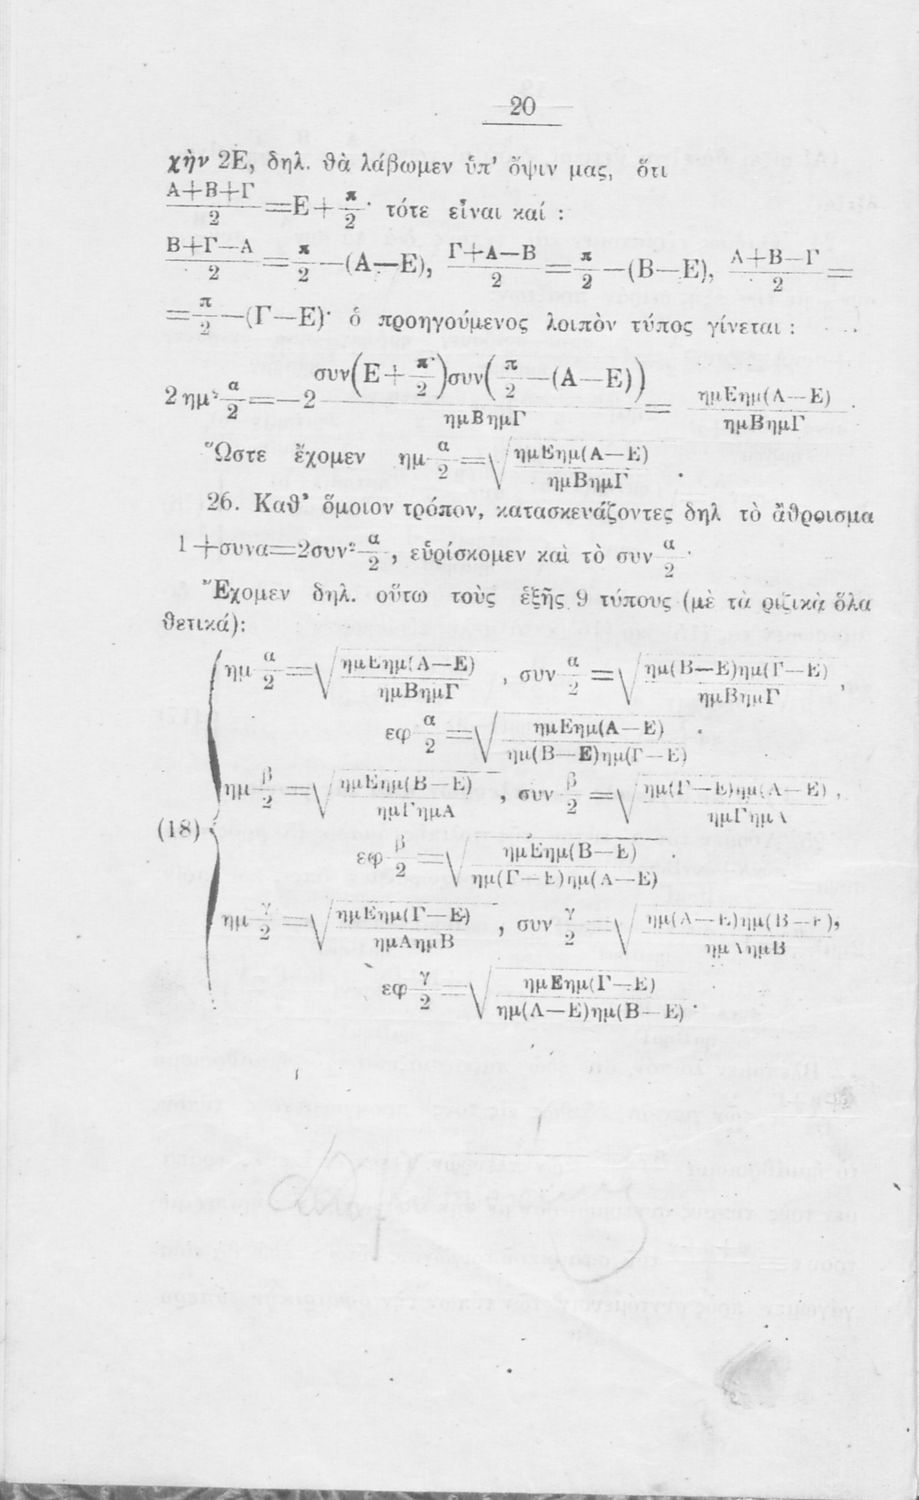 20
χὴν 2Ε, δηλ. θὰ λάβωμεν ὑπ' ὄψιν μας, ὅτι
(Α+Β+Γ)/2=Ε+π/2· τότε εἶναι καί :
(Β+Γ—Α)/2=π/2—(Α—Ε), (Γ+Α—Β)/2=π/2—(Β—Ε), (Α+Β—Γ)/2=
=π/2—(Γ—Ε)· ὁ προηγούμενος λοιπὸν τύπος γίνεται :
2ημ² α/2=—2 συν(Ε+π/2)συν(π/2—(Α—Ε))/ημΒημΓ = ημΕημ(Α—Ε)/ημΒημΓ .
Ὥστε ἔχομεν ημ α/2=√(ημΕημ(Α—Ε)/ημΒημΓ) .
26. Καθ' ὅμοιον τρόπον, κατασκευάζοντες δηλ τὸ ἄθροισμα
1+συνα=2συν² α/2 , εὑρίσκομεν καὶ τὸ συν α/2 ·
Ἔχομεν δηλ. οὕτω τοὺς ἑξῆς 9 τύπους (μὲ τὰ ριζικὰ ὅλα
θετικά):
ημ α/2=√(ημΕημ(Α—Ε)/ημΒημΓ) , συν α/2=√(ημ(Β—Ε)ημ(Γ—Ε)/ημΒημΓ) ,
εφ α/2=√(ημΕημ(Α—Ε)/ημ(Β—Ε)ημ(Γ—Ε)) .
ημ β/2=√(ημΕημ(Β—Ε)/ημΓημΑ) , συν β/2=√(ημ(Γ—Ε)ημ(Α—Ε)/ημΓημΑ) ,
(18)
εφ β/2=√(ημΕημ(Β—Ε)/ημ(Γ—Ε)ημ(Α—Ε)) .
ημ γ/2=√(ημΕημ(Γ—Ε)/ημΑημΒ) , συν γ/2=√(ημ(Α—Ε)ημ(Β—Ε)/ημΑημΒ) ,
εφ γ/2=√(ημΕημ(Γ—Ε)/ημ(Α—Ε)ημ(Β—Ε)) ·